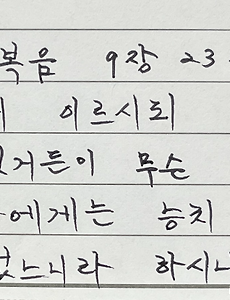 복음 9장 23
이르시되
거든이 무슨
에게는 능치
느니라 하시니